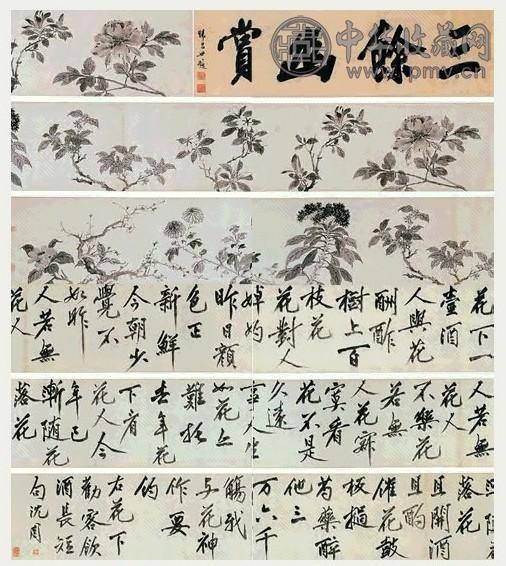 三餘幽賞
中华收藏网
www.pmv.cn
花下一
壺酒
人與花
酬酢
樹上百
枝花
花對人
婥妁
昨日顏
色正
新鮮
今朝少
覺不
如昨
人若無
花人
人若無
花人
不樂花
若無
人花寂
寞看
花不是
久遠
事人生
如花亦
難托
去年花
下看
花人今
年已
漸隨花
落花
落花
且開酒
且酌
催花鼓
板撾
芍藥醉
他三
万六千
觴我
与花神
作要
約
右花下
勸客飲
酒長短
句沈周